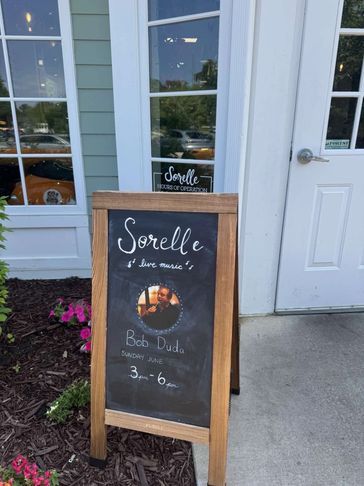 Sorelle
HOURS OF OPERATION
Sorelle
live music
Bob Duda
SUNDAY JUNE
3pm-6pm